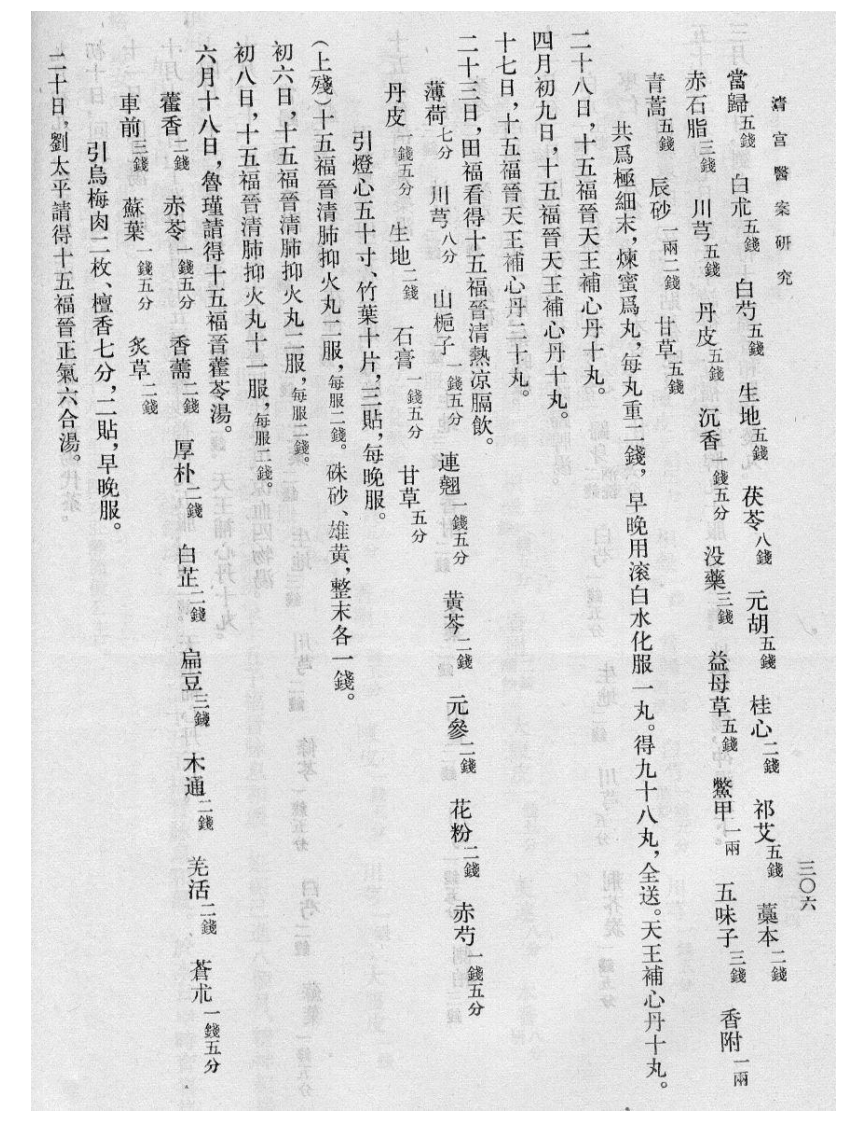 清宮醫案研究
三〇六
當歸五錢 白朮五錢 白芍五錢 生地五錢 茯苓八錢 元胡五錢 桂心二錢 祁艾五錢 藁本二錢
赤石脂三錢 川芎五錢 丹皮五錢 沉香一錢五分 没藥三錢 益母草五錢 鱉甲一兩 五味子三錢 香附一兩
青蒿五錢 辰砂一兩二錢 甘草五錢
共爲極細末，煉蜜爲丸，每丸重二錢，早晚用滚白水化服一丸。得九十八丸，全送。天王補心丹十丸。
二十八日，十五福晉天王補心丹十丸。
四月初九日，十五福晉天王補心丹十丸。
十七日，十五福晉天王補心丹二十丸。
二十三日，田福看得十五福晉清熱凉膈飲。
薄荷七分 川芎八分 山梔子一錢五分 連翹一錢五分 黄芩二錢 元參二錢 花粉二錢 赤芍一錢五分
丹皮一錢五分 生地二錢 石膏一錢五分 甘草五分
引燈心五十寸、竹葉十片，三貼，每晚服。
(上殘)十五福晉清肺抑火丸二服，每服二錢。硃砂、雄黄，整末各一錢。
初六日，十五福晉清肺抑火丸二服，每服二錢。
初八日，十五福晉清肺抑火丸十一服，每服二錢。
六月十八日，魯瑾請得十五福晉藿苓湯。
藿香二錢 赤苓一錢五分 香薷二錢 厚朴二錢 白芷二錢 扁豆三錢 木通二錢 羌活二錢 蒼朮一錢五分
車前三錢 蘇葉一錢五分 炙草二錢
引烏梅肉二枚、檀香七分，二貼，早晚服。
二十日，劉太平請得十五福晉正氣六合湯。